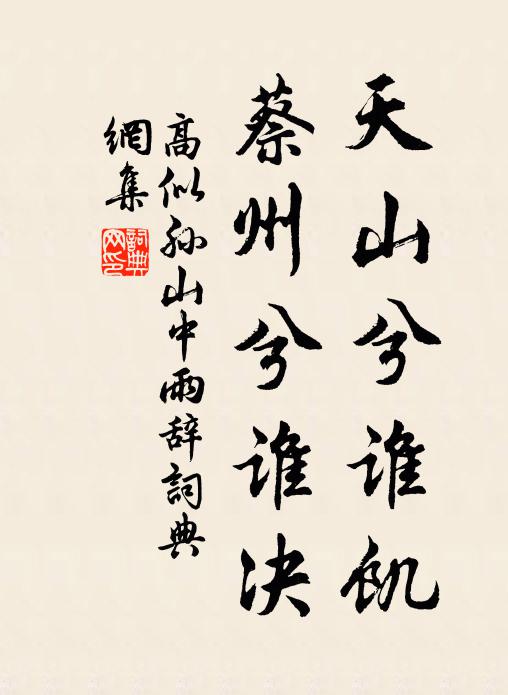 天山兮谁饥
蔡州兮谁决
高似孙山中雨辞詞典
網集
詞典
网印